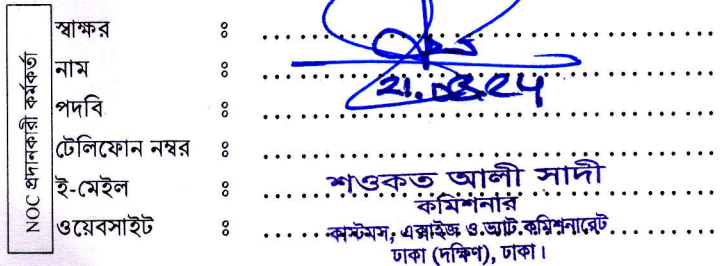 NOC প্রদানকারী কর্মকর্তা
স্বাক্ষর ঃ
নাম ঃ
পদবি ঃ
টেলিফোন নম্বর ঃ
ই-মেইল ঃ
ওয়েবসাইট ঃ
শওকত আলী সাদী
কমিশনার
কাস্টমস, এক্সাইজ ও ভ্যাট কমিশনারেট
ঢাকা (দক্ষিণ), ঢাকা।